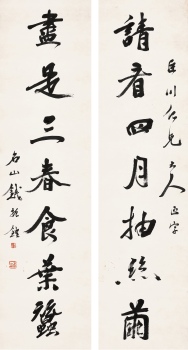 川仁兄大人正字
請看四月抽絲繭
盡是三春食葉蠶
名山錢振鍠